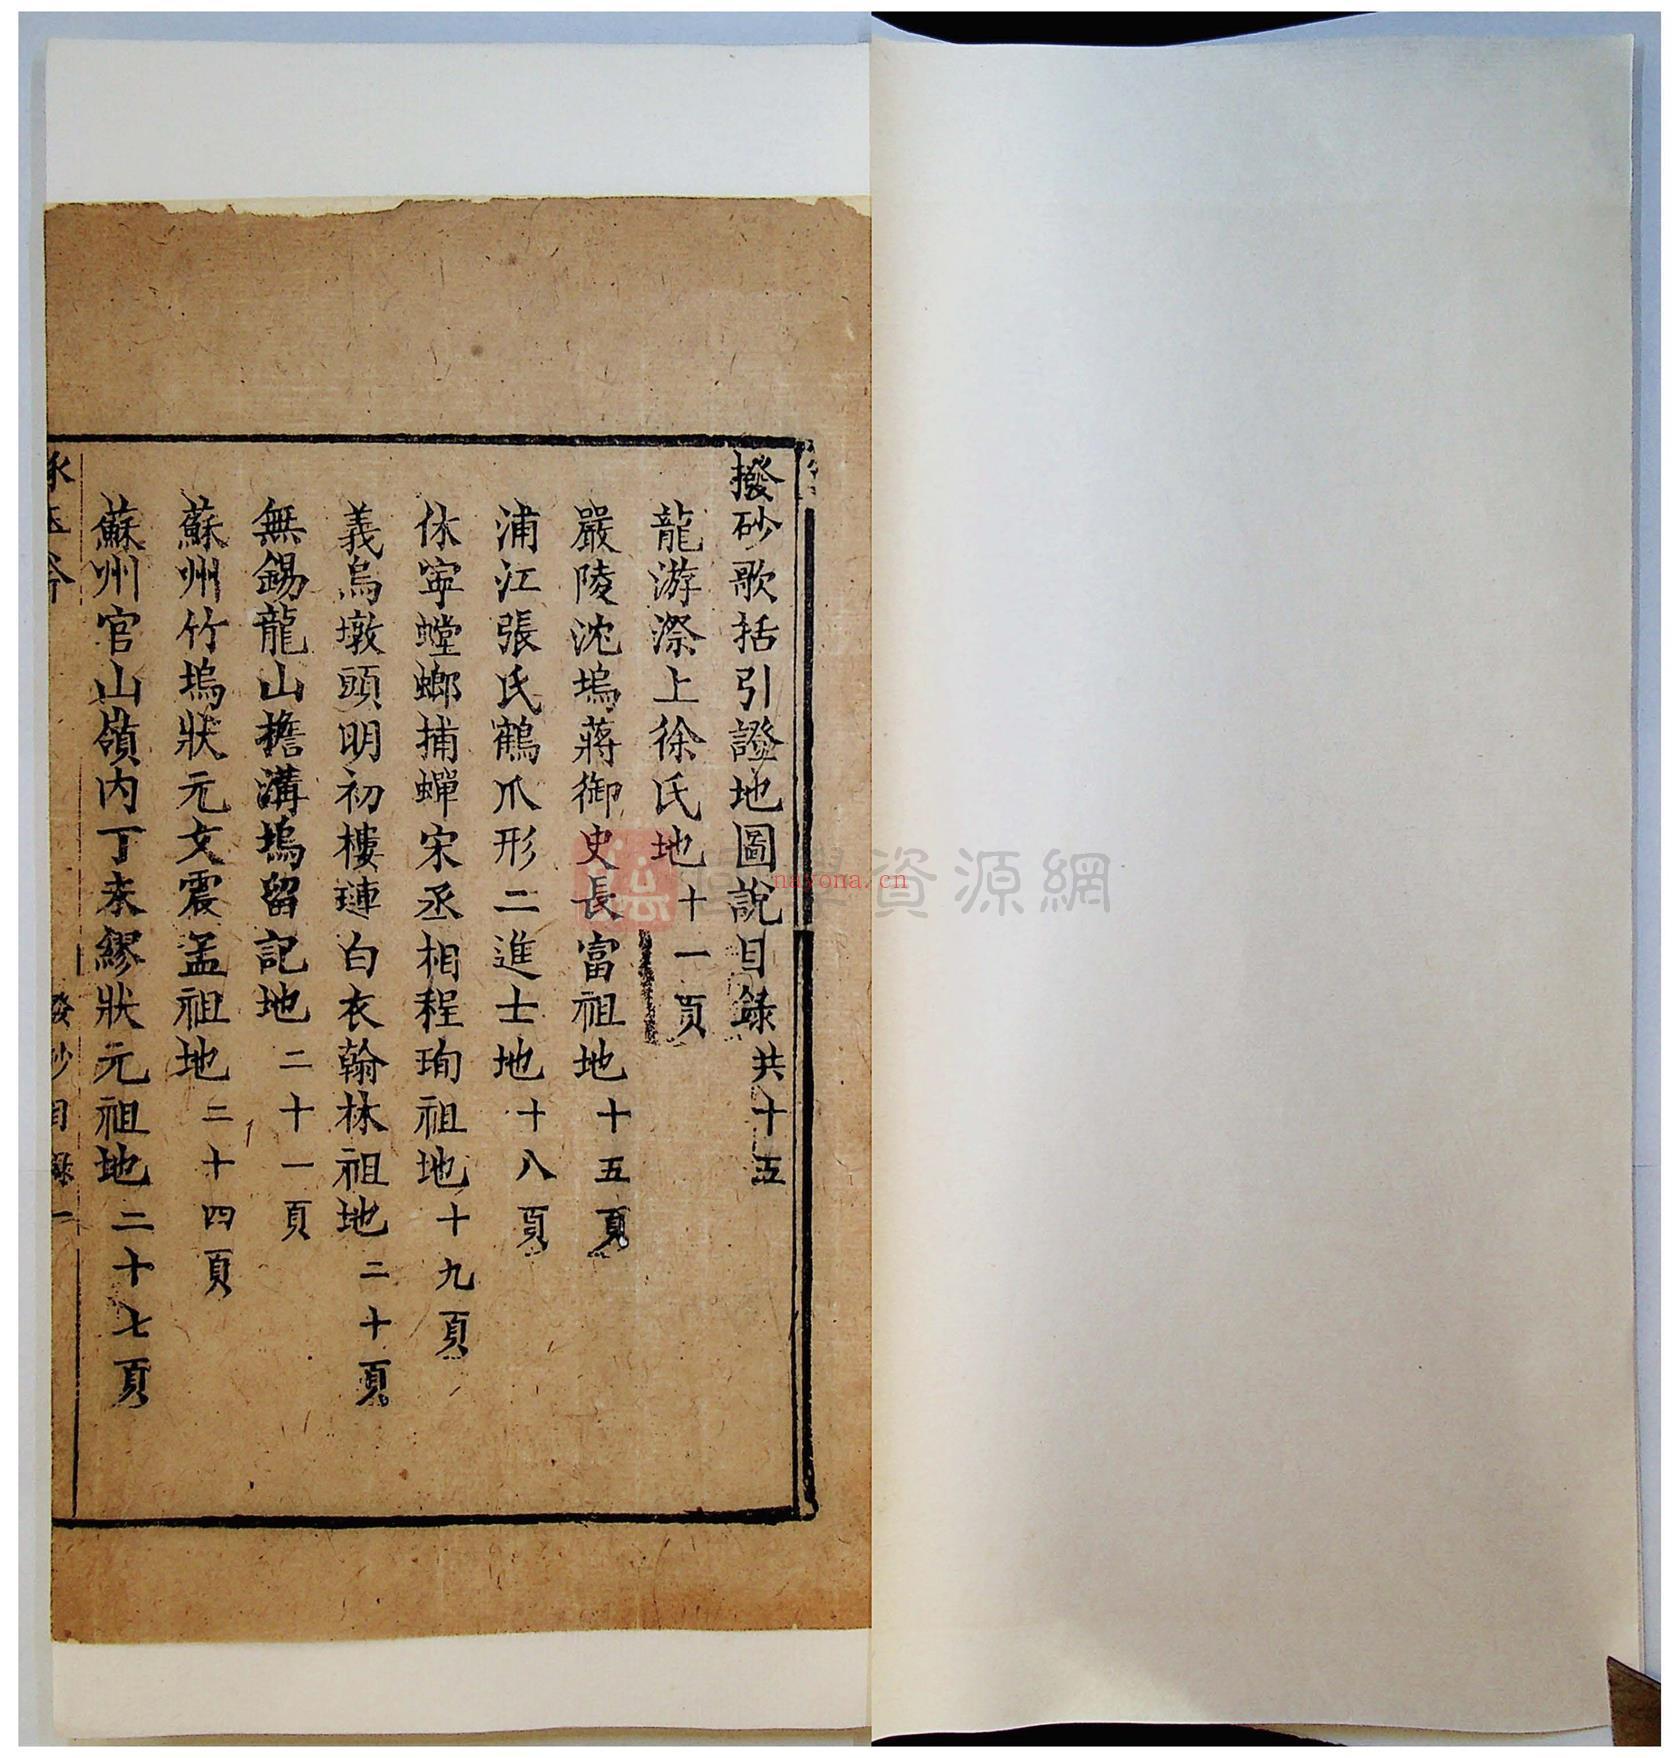 撥砂歌括引證地圖說目錄共十五
龍游漈上徐氏地十一頁
嚴陵沈塢蔣御史長富祖地十五頁
浦江張氏鶴爪形二進士地十八頁
休寧螳螂捕蟬宋丞相程珣祖地十九頁
義烏墩頭明初樓璉白衣翰林祖地二十頁
無錫龍山擔溝塢留記地二十一頁
蘇州竹塢狀元文震孟祖地二十四頁
蘇州官山嶺内丁未繆狀元祖地二十七頁
發砂目錄一
學資源網
nayona.cn